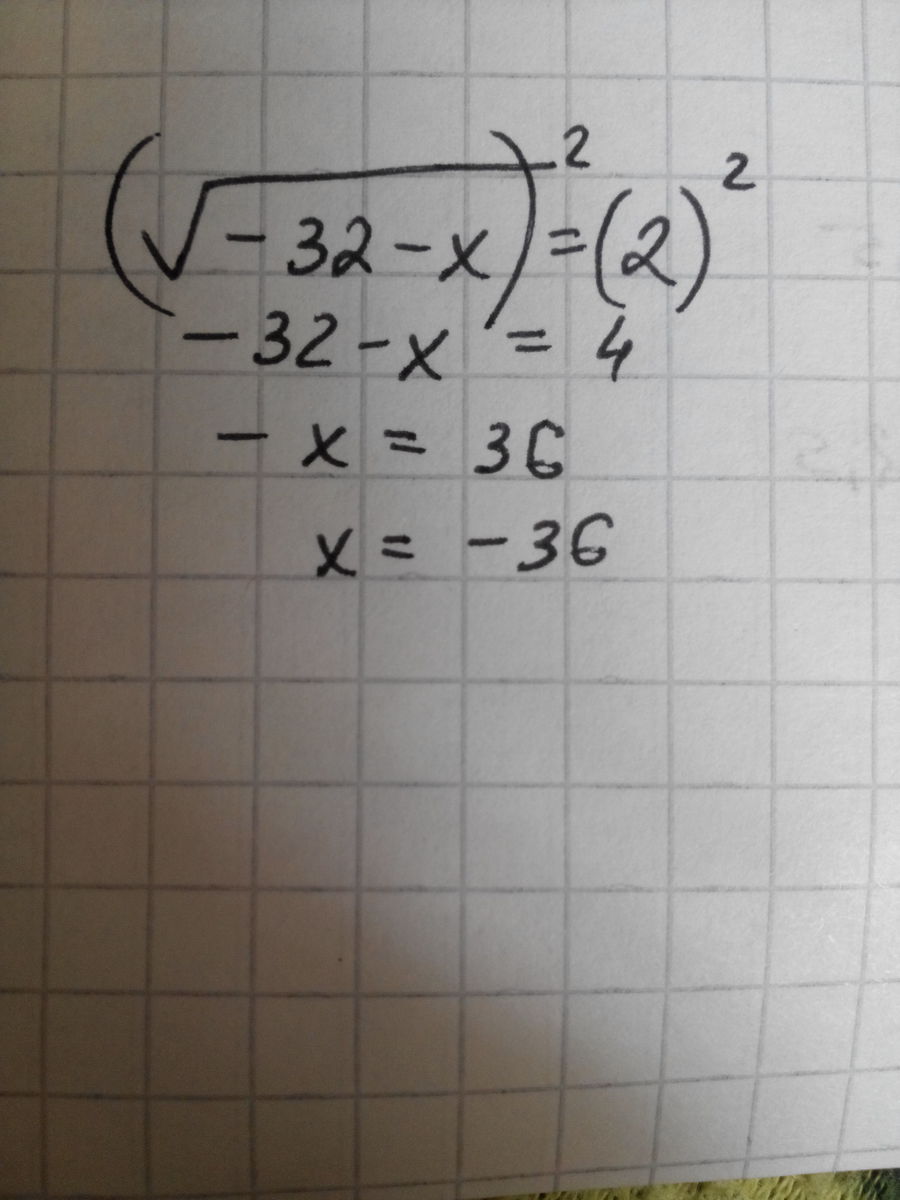 (√-32-x)² = (2)²
-32-x = 4
-x = 36
x = -36